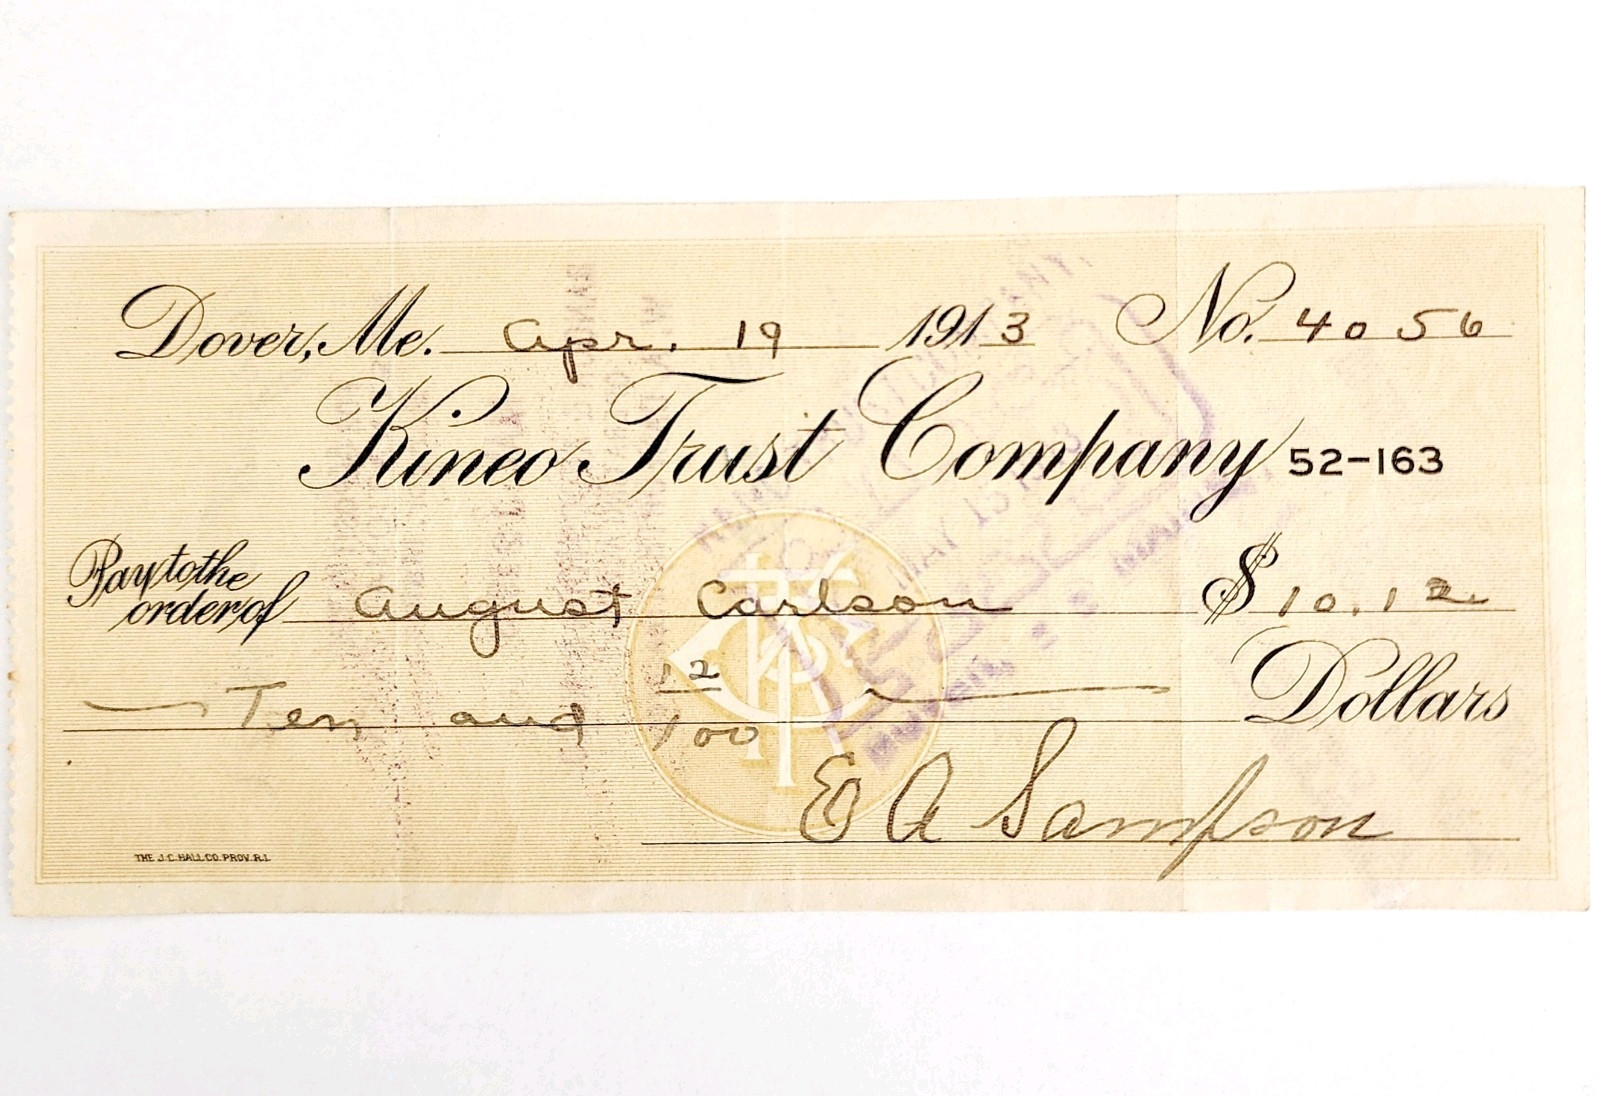 Dover, Me. Apr. 19 1913 No. 4056
Kineo Trust Company 52-163
Pay to the
order of August Carlson $10.12
Ten and 12/100 Dollars
E A Sampson
THE J.C. HALL CO. PROV. R.I.